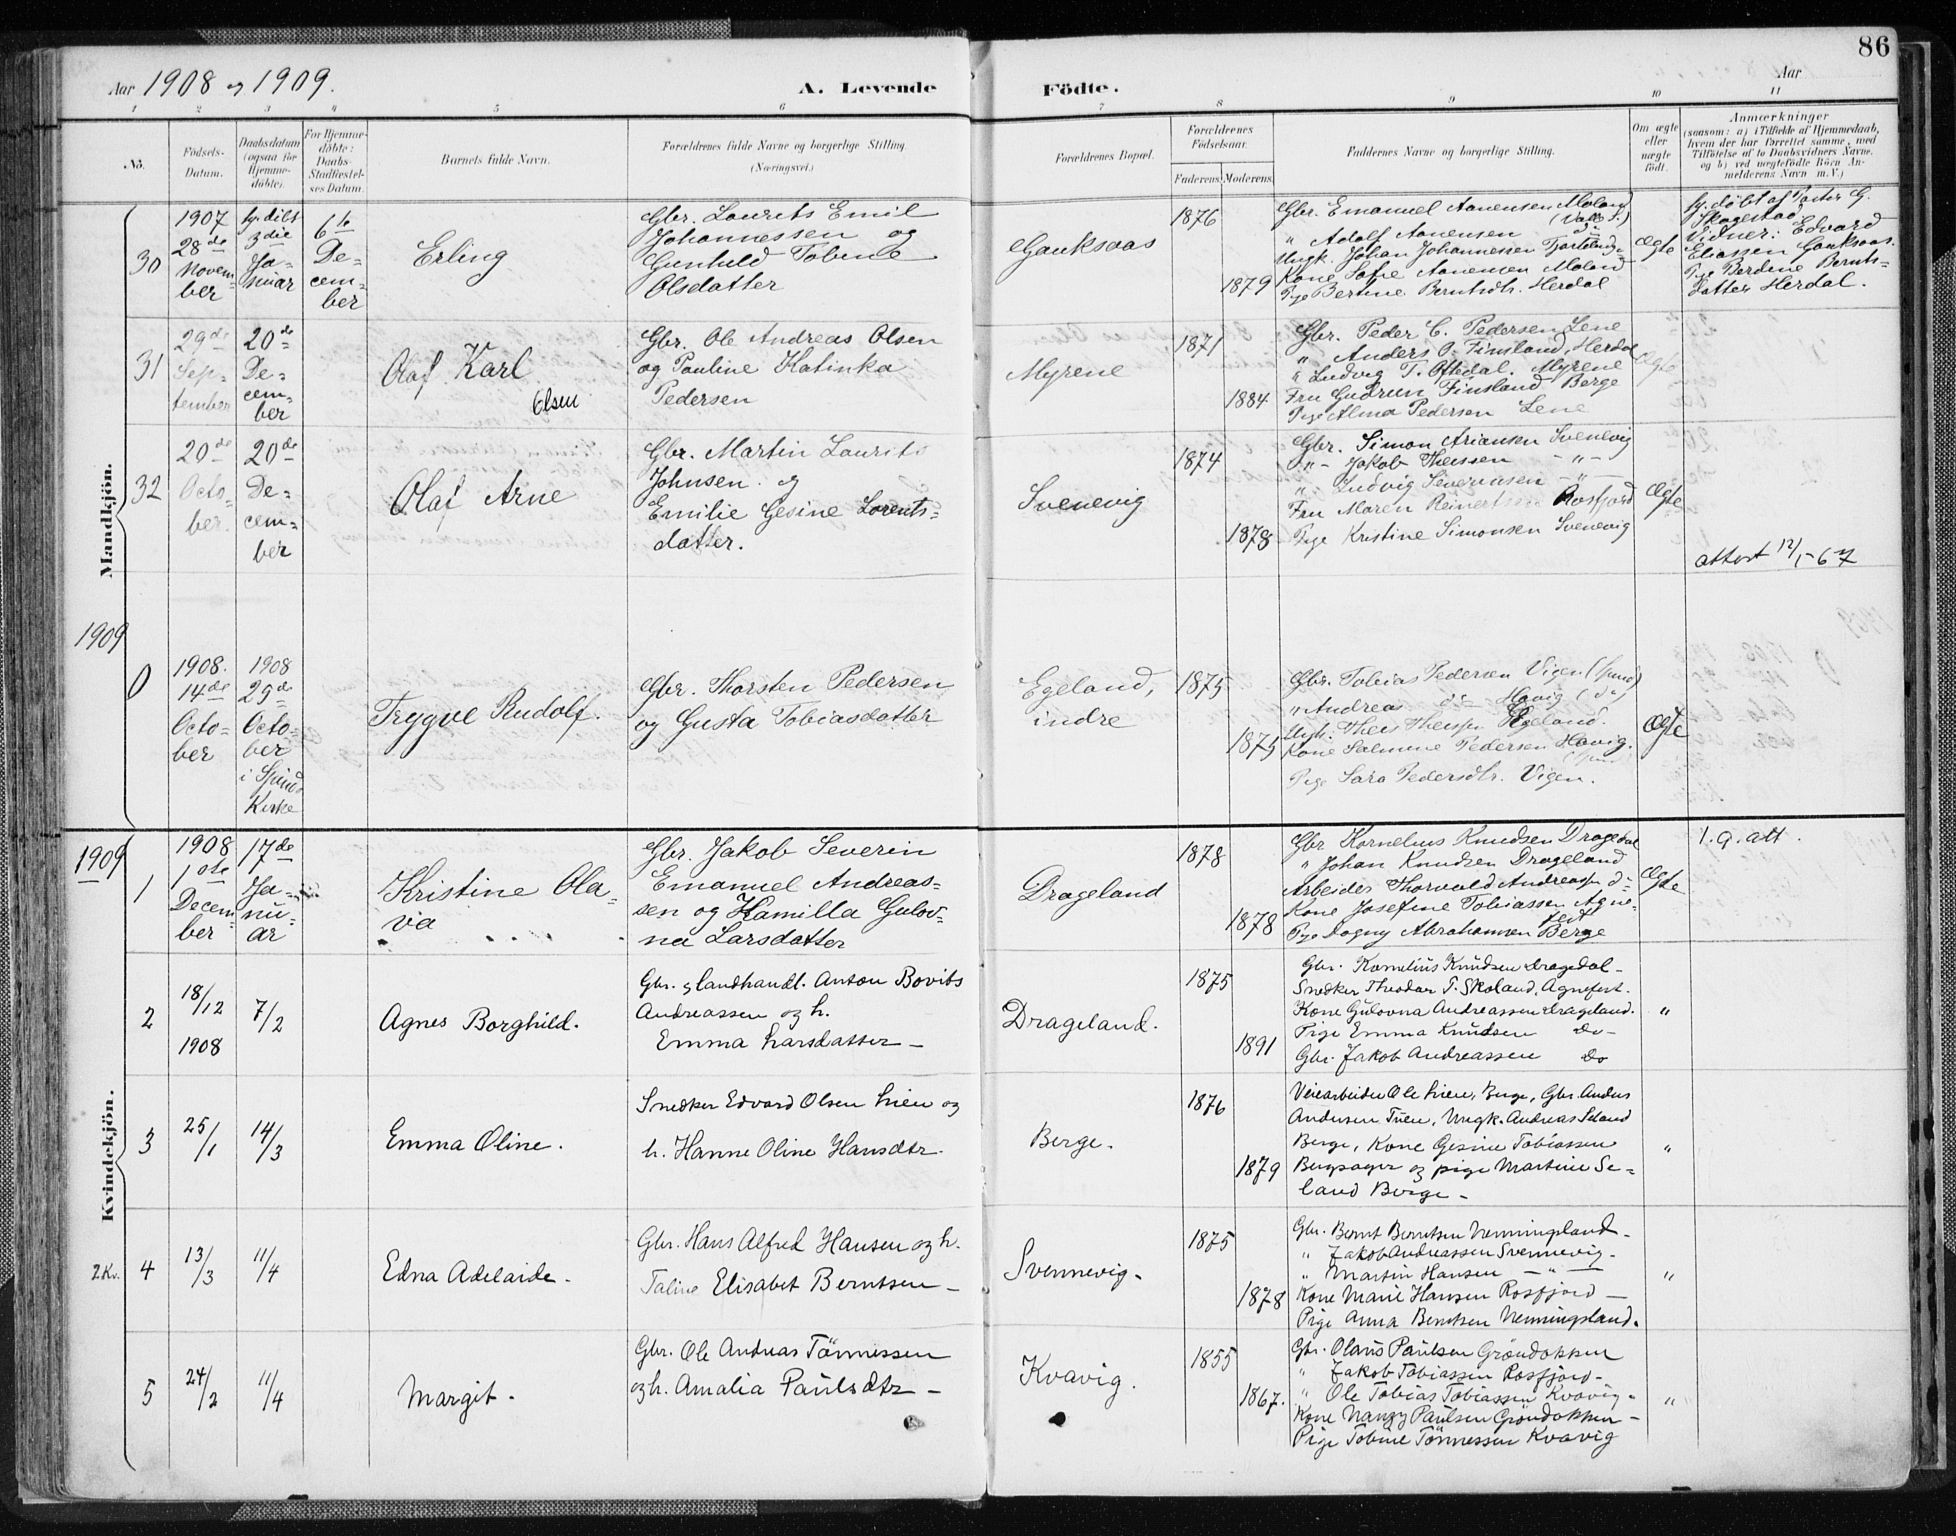 86
Aar 1908 og 1909.
A. Levende
Födte.
Aar
1 2 3 4 5 6 7 8 9 10 11
No.
Födsels-
Datum.
Daabsdatum
(ogsaa for
Hjemme-
döbte).
For Hjemme-
döbte:
Daabs-
Stadfæstel-
ses Datum.
Barnets fulde Navn.
Forældrenes fulde Navne og borgerlige Stilling.
(Næringsvei.)
Forældrenes Bopæl.
Forældrenes
Födselsaar.
Faderens. Moderens.
Faddernes Navne og borgerlige Stilling.
Om ægte
eller
uægte
födt.
Anmærkninger
(saasom: a) i Tilfælde af Hjemmedaab,
hvem der har forrettet samme, med
Tilföielse af to Daabsvidners Navne,
og b) ved uægtefödte Börn An-
melderens Navn m. V.)
Mandkjön.
30
1907
28de
Novem-
ber
hj. döbt
3die
Ja-
nuar
6te
De-
cem-
ber
Erling
Gbr. Laurits Emil
Johannessen og
Gunhild Tobine
Olsdatter
Gauksaas
1876
1879
Gbr. Emanuel Aanensen Moland
(Valle S.)
" Adolf Aanensen do
Ungk. Johan Johannessen
Kone Sofie Aanensen Moland
Pige Bertine Berntsdtr. Herdal
Ægte
hj. döbt af Pastor G.
Skagestad
Vidner: Edvard
Eliassen Gauksaas
Pige Berdine Bernts-
datter Herdal.
31
29de
Sep-
tember
20de
De-
cem-
ber
Olaf Karl
Olsen
Gbr. Ole Andreas Olsen
og Pauline Katinka
Pedersen
Myrene
1871
1884
Gbr. Peder C. Pedersen Lene
" Anders O. Finsland, Herdal
" Ludvig T. Oftedal. Myrene
Fru Gudrun Finsland Berge
Pige Alma Pedersen Lene
Ægte
32
20de
Octo-
ber.
20de
De-
cem-
ber
Olaf Arne
Gbr. Martin Laurits
Johnsen og
Emilie Gesine Lorents-
datter.
Svenevig
1874
1878
Gbr. Simon Ariansen Svenevig
" Jakob Theissen - " -
" Ludvig Severinsen - " -
Fru Maren Reinertsen Rosfjord
Pige Kristine Simonsen Svenevig
Ægte
attest 12/1-67
1909
0
1908.
14de
Octo-
ber
1908
29de
Octo-
ber
i Spinds
Kirke
Trygve Rudolf.
Gbr. Thorsten Pedersen
og Gusta Tobiasdatter
Egeland,
indre
1875
1875
Gbr. Tobias Pedersen Vigen (Spind)
" Andreas do Havig (do)
Ungk. Thees Theesen Egeland.
Kone Salmine Pedersen Havig.
(Spind)
Pige Sara Pedersdtr. Vigen.
Ægte
Kvindekjön.
1909
1
1908
1ste
Decem-
ber
17de
Ja-
nu-
ar
Kristine Ola-
va
Gbr. Jakob Severin
Emanuel Andreas-
sen og Kamilla Gulov-
na Larsdatter
Drageland
1878
1878
Gbr Kornelius Knudsen Dragedal
" Johan Knudsen Drageland
Arbeider Thorvald Andreassen do
Kone Josefine Tobiassen Agne-
fest
Pige Dagny Abrahamsen Berge
Ægte
1. g. att.
2
18/12
1908
7/2
Agnes Borghild.
Gbr. og landhandl. Anton Bovits
Andreassen og h.
Emma Larsdatter -
Drageland.
1875
1891
Gbr. Kornelius Knudsen Dragedal -
Snedker Theodor T. Skoland, Agnefest.
Kone Gulovna Andreassen Drageland.
Pige Emma Knudsen Do -
Gbr. Jakob Andreassen Do
"
3
25/1
14/3
Emma Oline.
Snedker Edvard Olsen Lien og
h. Hanne Oline Hansdtr.
Berge.
1876
1879
Veiarbeider Ole Lien, Berge, Gbr. Anders
Andersen Tuen, Ungk. Andreas Seland
Berge, Kone Gesine Tobiassen
Bergsager og pige Martine Se-
land Berge -
"
2 Kv.
4
13/3
11/4
Edna Adelaide -
Gbr. Hans Alfred Hansen og h.
Taline Elisabet Berntsen -
Svennevig -
1875
1878
Gbr. Bernt Berntsen Venningsland -
" Jakob Andreassen Svennevig -
" Martin Hansen - " -
Kone Marie Hansen Rosfjord -
Pige Anna Berntsen Venningsland.
"
5
24/2
11/4
Margit -
Gbr. Ole Andreas Tönnessen
og h. Amalia Paulsdtr -
Kvavig.
1855
1867.
Gbr. Olaus Paulsen Gröndokken
" Jakob Tobiassen Rosfjord -
" Ole Tobias Tobiassen Kvavig -
Kone Nanzy Paulsen Gröndokken -
Pige Tobine Tönnessen Kvavig
"